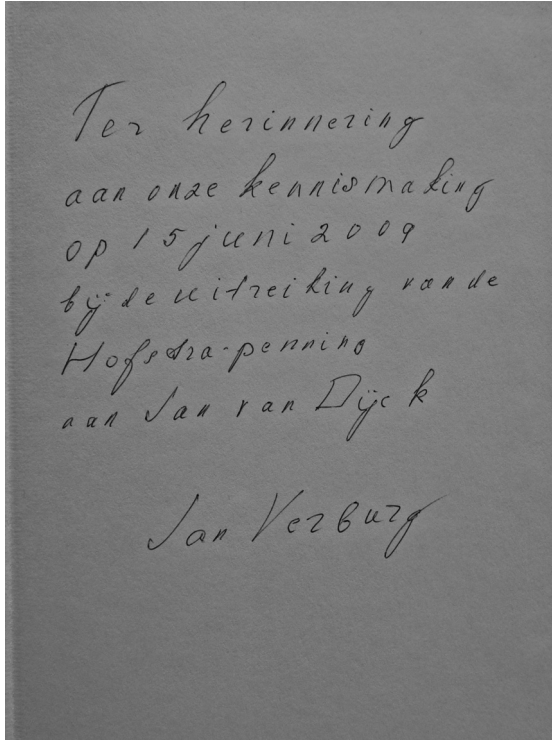 Ter herinnering
aan onze kennismaking
op 15 juni 2009
bij de uitreiking van de
Hofstra-penning
aan Jan van Dijck
Jan Verburg